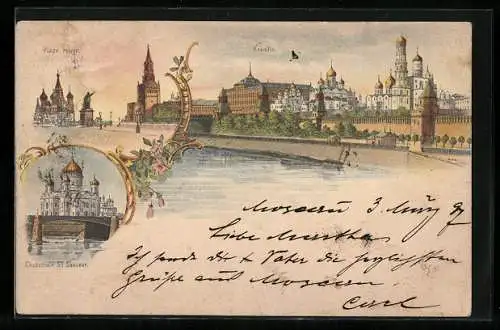 Place rouge.
Kremlin.
Cathédrale St. Sauveur.
Moscau 3 März 97
Liebe Martha
Ich sende dir & Vater die herzlichsten
Grüße aus Moscau
Carl